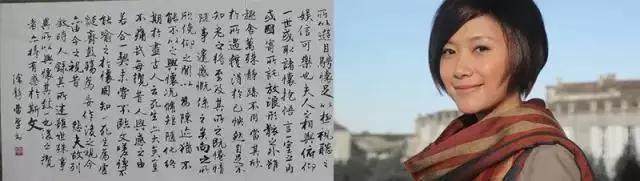 所以遊目騁懷足以極視聽之
娛信可樂也夫人之相與俯仰
一世或取諸懷抱悟言一室之內
或因寄所託放浪形骸之外雖
趣舍萬殊靜躁不同當其欣
於所遇暫得於己快然自足不
知老之將至及其所之既倦情
隨事遷感慨係之矣向之所
欣俛仰之間以為陳迹猶不
能不以之興懷況脩短隨化終
期於盡古人云死生亦大矣豈
不痛哉每攬昔人興感之由
若合一契未嘗不臨文嗟悼不
能喻之於懷固知一死生為虛
誕齊彭殤為妄作後之視今
亦由今之視昔悲夫故列
敘時人錄其所述雖世殊事
異所以興懷其致一也後之攬
者亦將有感於斯文